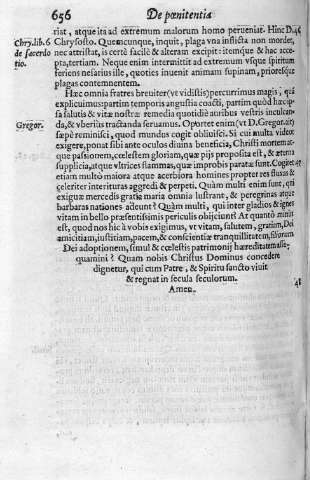 656 De pœnitentia
riat, atque ita ad extremum malorum homo perueniat. Hinc D. 46
Chry. lib. 6 Chrysosto. Quemcunque, inquit, plaga vna inflicta non mordet,
de sacerdo nec attristat, is certè facilè & alteram excipit: itemque & hac acce-
tio. pta, tertiam. Neque enim intermittit ad extremum vsque spiritum
feriens nefarius ille, quoties inuenit animam supinam, prioresque
plagas contemnentem.
Hæc omnia fratres breuiter (vt vidistis) percurrimus magis, quàm
explicuimus: partim temporis angustia coacti, partim quòd hæc ip-
sa salutis & vitæ nostræ remedia quotidie auribus vestris inculcan-
Gregor. da, & vberiùs tractanda seruamus. Oportet enim (vt D. Gregor. ait)
sæpè reminisci, quod mundus cogit obliuisci. Si cui multa videor
exigere, ponat sibi ante oculos diuina beneficia, Christi mortem at-
que passionem, cælestem gloriam, quæ pijs proposita est, & æterna
supplicia, atque vltrices flammas, quæ improbis paratæ sunt. Cogitet 47
etiam multò maiora atque acerbiora homines propter res fluxas &
celeriter interituras aggredi & perpeti. Quàm multi enim sunt, qui
exiguæ mercedis gratia maria omnia lustrant, & peregrinas atque
barbaras nationes adeunt? Quàm multi, qui inter gladios & ignes
vitam in bello præsentissimis periculis obijciunt? At quantò minus
est, quod nos hic à vobis exigimus, vt vitam, salutem, gratiam, Dei
amicitiam, iustitiam, pacem, & conscientiæ tranquillitatem, filiorum
Dei adoptionem, simul & cœlestis patrimonij hæreditatem
quamini? Quam nobis Christus Dominus concedere
dignetur, qui cum Patre, & Spiritu sancto viuit
& regnat in secula seculorum.
Amen. 48